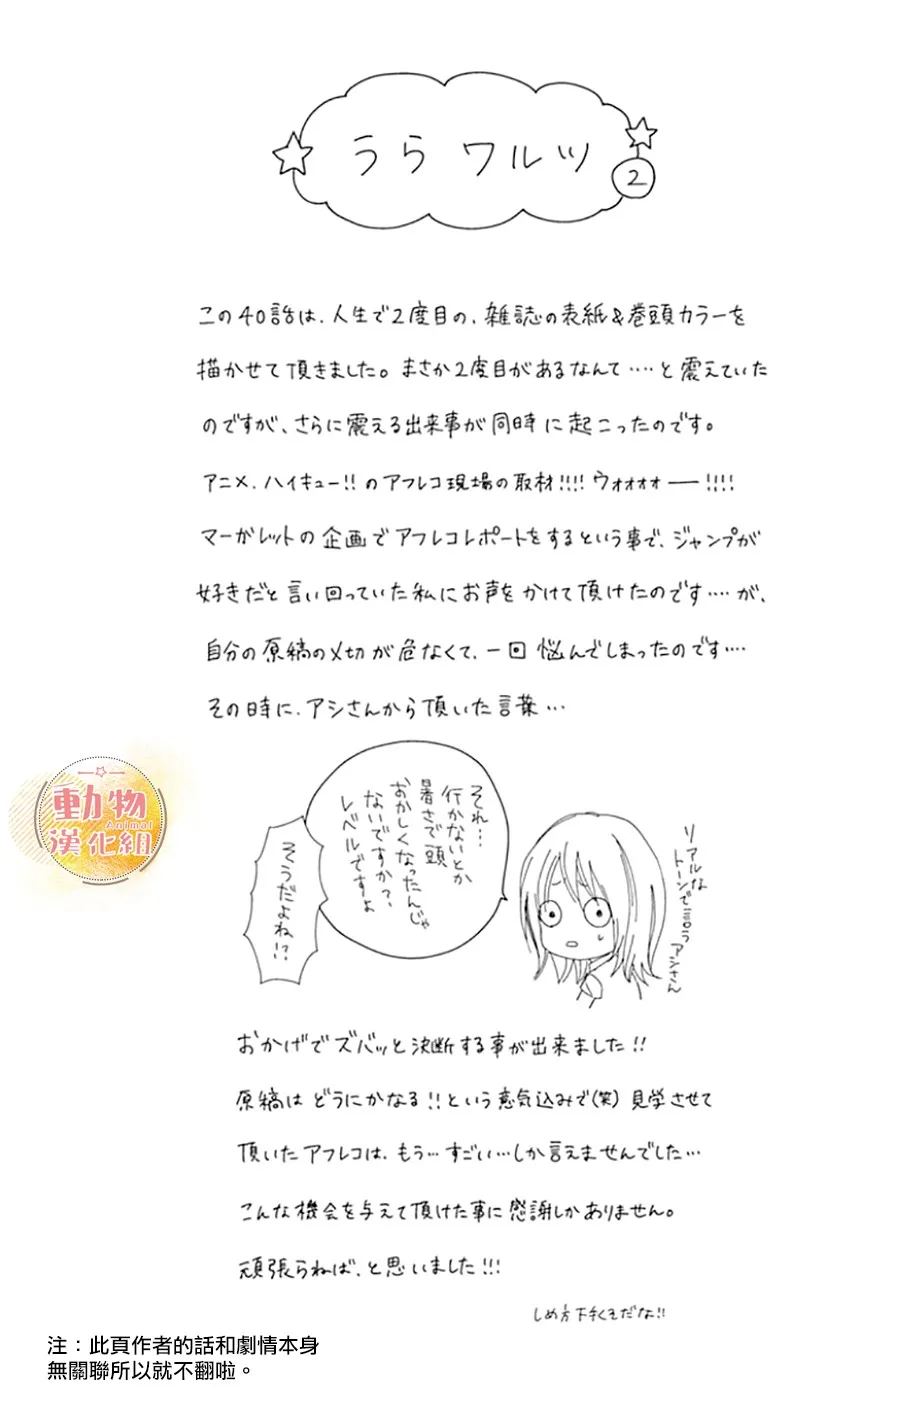 うら ワルツ
2
この40話は、人生で2度目の、雑誌の表紙&巻頭カラーを
描かせて頂きました。まさか2度目があるなんて‥‥と震えていた
のですが、さらに震える出来事が同時に起こったのです。
アニメ、ハイキュー!!のアフレコ現場の取材!!!!ウォォォォー!!!!
マーガレットの企画でアフレコレポートをするという事で、ジャンプが
好きだと言い回っていた私にお声をかけて頂けたのです‥‥が、
自分の原稿の〆切が危なくて、一回悩んでしまったのです‥‥
その時に、アシさんから頂いた言葉…
それ…
行かないとか
暑さで頭
おかしくなったんじゃ
ないですか?、
レベルですよ
そうだよね!?
リアルな
トーンで言うアシさん
おかげでズバッと決断する事が出来ました!!
原稿はどうにかなる!!という意気込みで(笑)見学させて
頂いたアフレコは、もう…すごい…しか言えませんでした…
こんな機会を与えて頂けた事に感謝しかありません。
頑張らねば、と思いました!!!
しめ方下手くそだな!!
動物
Animal
漢化組
注：此頁作者的話和劇情本身
無關聯所以就不翻啦。